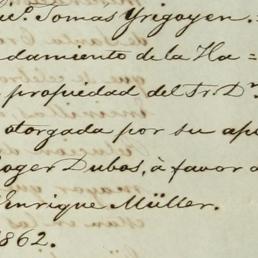 Tomás Yrigoyen.
damiento de la Ha=
propiedad del Sr. Dn.
otorgada por su apo
Roger Dubos, à favor d
Enrique Müller.
1862.